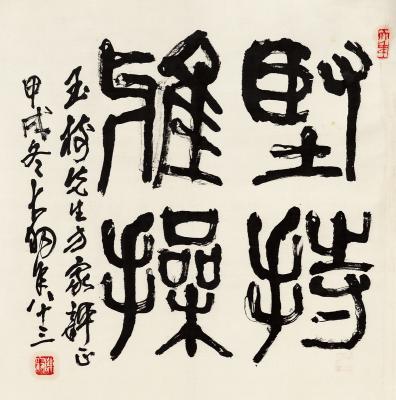 堅持
雅操
玉 先生方家評正
甲戌冬大羽年八十三